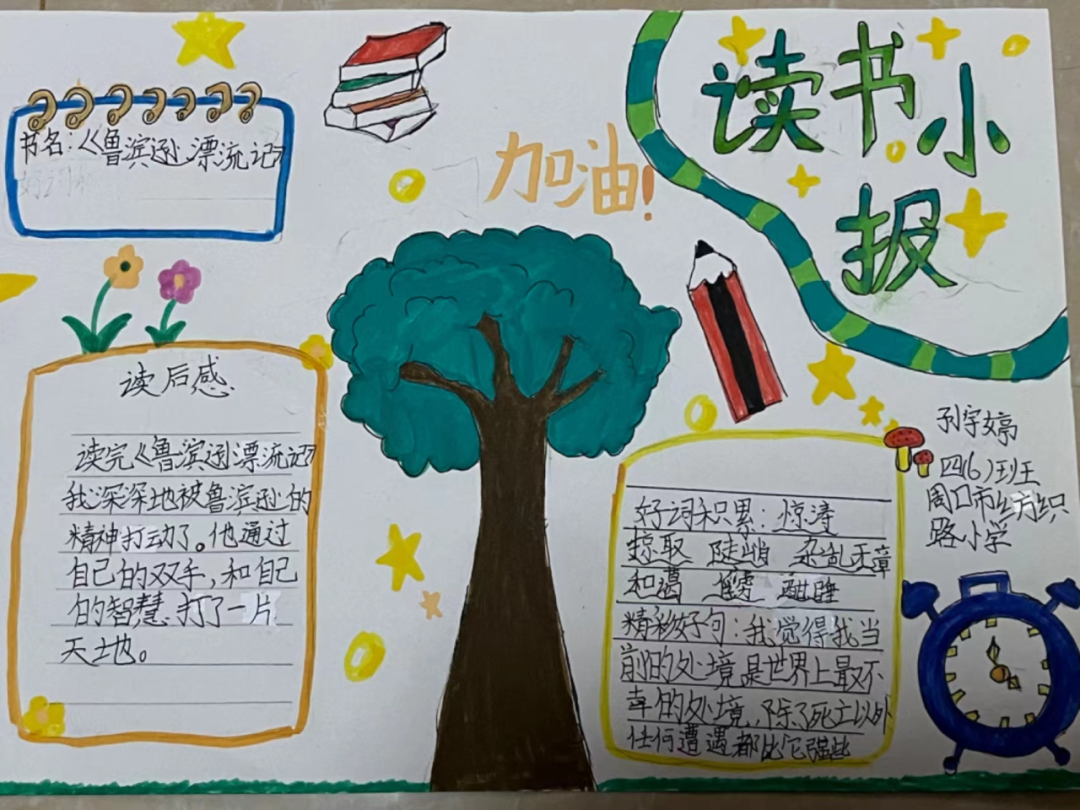 读书小
报
加油!
书名:《鲁滨逊漂流记》
读后感
读完《鲁滨逊漂流记》
我深深地被鲁滨逊的
精神打动了。他通过
自己的双手,和自己
的智慧.打了一片
天地。
孙宇婷
四(6)班
周口市纺织
路小学
好词积累:惊涛
掠取 陡峭 杂乱无章
和蔼 酣睡
精彩好句:我觉得我当
前的处境,是世界上最不
幸的处境,除了死亡以外
任何遭遇都比它强些